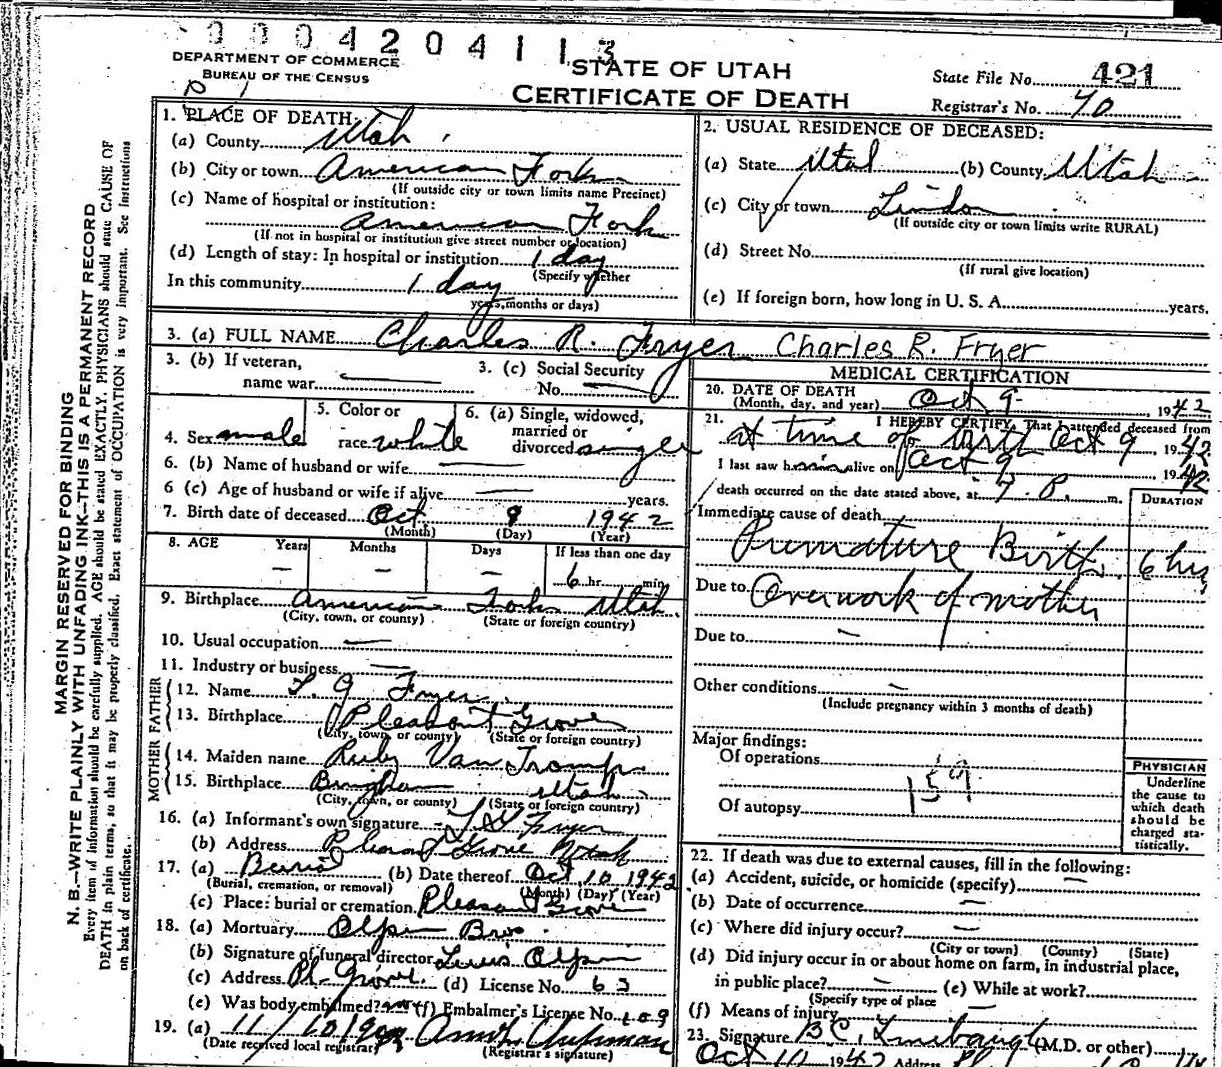 0004204113
DEPARTMENT OF COMMERCE
BUREAU OF THE CENSUS
STATE OF UTAH
CERTIFICATE OF DEATH
State File No. 421
Registrar's No. 40
MARGIN RESERVED FOR BINDING
N. B.—WRITE PLAINLY WITH UNFADING INK—THIS IS A PERMANENT RECORD
Every item of information should be carefully supplied. AGE should be stated EXACTLY. PHYSICIANS should state CAUSE OF
DEATH in plain terms, so that it may be properly classified. Exact statement of OCCUPATION is very important. See Instructions
on back of certificate.
1. PLACE OF DEATH:
(a) County Utah
(b) City or town American Fork
(If outside city or town limits name Precinct)
(c) Name of hospital or institution:
American Fork
(If not in hospital or institution give street number or location)
(d) Length of stay: In hospital or institution 1 day
(Specify whether
In this community 1 day
years, months or days)
2. USUAL RESIDENCE OF DECEASED:
(a) State Utah (b) County Utah
(c) City or town Lindon
(If outside city or town limits write RURAL)
(d) Street No.
(If rural give location)
(e) If foreign born, how long in U. S. A. years.
3. (a) FULL NAME Charles R. Fryer Charles R. Fryer
3. (b) If veteran,
name war
3. (c) Social Security
No.
4. Sex male
5. Color or
race white
6. (a) Single, widowed,
married or
divorced single
6. (b) Name of husband or wife
6 (c) Age of husband or wife if alive years.
7. Birth date of deceased Oct 9 1942
(Month) (Day) (Year)
8. AGE Years Months Days If less than one day
6 hr. min.
9. Birthplace American Fork Utah
(City, town, or county) (State or foreign country)
10. Usual occupation
11. Industry or business
FATHER
12. Name
Fryer
13. Birthplace Pleasant Grove
(City, town or county) (State or foreign country)
MOTHER
14. Maiden name Ruby Van Tromp
15. Birthplace Bingham Utah
(City, town, or county) (State or foreign country)
16. (a) Informant's own signature Fryer
(b) Address Pleasant Grove Utah
17. (a) Burial (b) Date thereof Oct 10 1942
(Burial, cremation, or removal) (Month) (Day) (Year)
(c) Place: burial or cremation Pleasant Grove
18. (a) Mortuary Olpin Bros
(b) Signature of funeral director Olpin
(c) Address Pl. Grove (d) License No. 63
(e) Was body embalmed? (f) Embalmer's License No. 109
19. (a) 11/10
(Date received local registrar) (Registrar's signature)
MEDICAL CERTIFICATION
20. DATE OF DEATH
(Month, day, and year) Oct 9, 1942
21. I HEREBY CERTIFY, That I attended deceased from
at time of birth Oct 9, 1942
I last saw him alive on Oct 9 1942
death occurred on the date stated above, at 7 P. m.
DURATION
Immediate cause of death
Premature Birth 6 hrs
Due to Overwork of mother
Due to
Other conditions
(Include pregnancy within 3 months of death)
Major findings:
Of operations
159
Of autopsy
PHYSICIAN
Underline
the cause to
which death
should be
charged sta-
tistically.
22. If death was due to external causes, fill in the following:
(a) Accident, suicide, or homicide (specify)
(b) Date of occurrence
(c) Where did injury occur?
(City or town) (County) (State)
(d) Did injury occur in or about home on farm, in industrial place,
in public place? (e) While at work?
(Specify type of place
(f) Means of injury
23. Signature B.C. Linebaugh (M.D. or other)
Oct 10 1942 Address